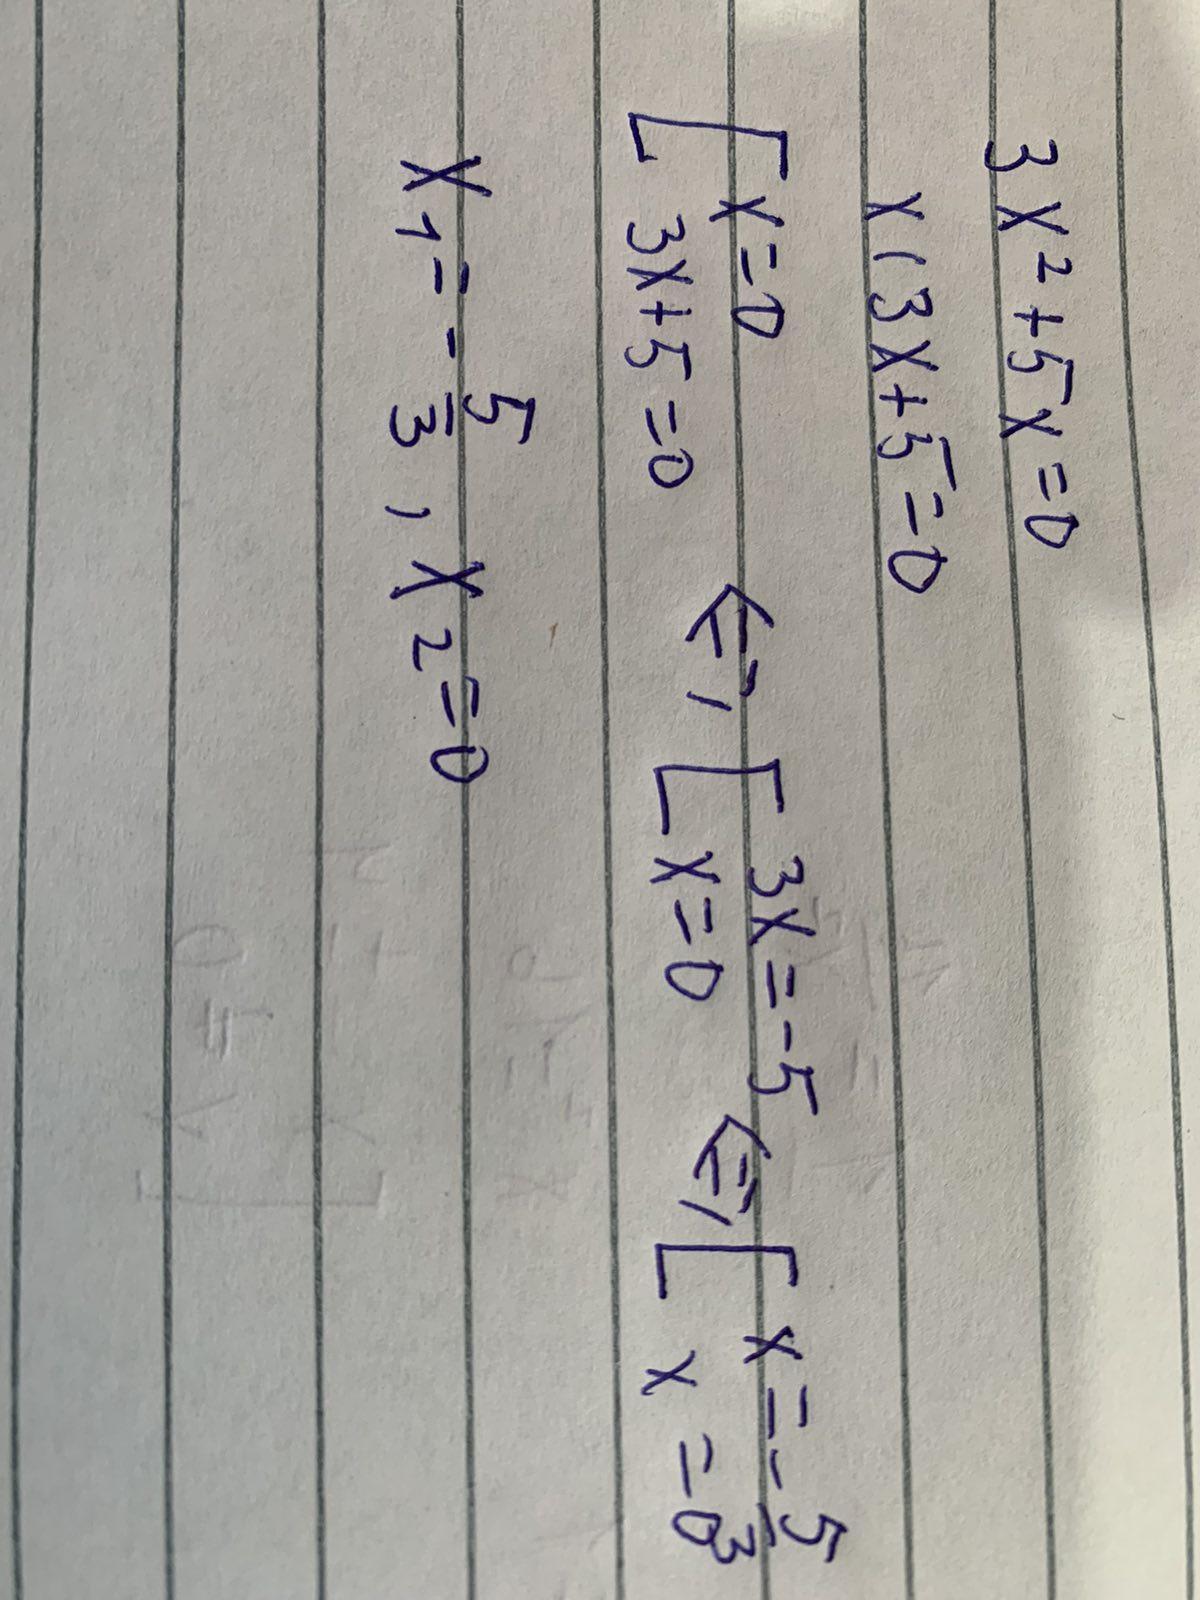 3x²+5x=0
x(3x+5=0
[x=0 3x+5=0 <=> [3x=-5 x=0 <=> [x=-5/3 x=0
x₁=-5/3, x₂=0